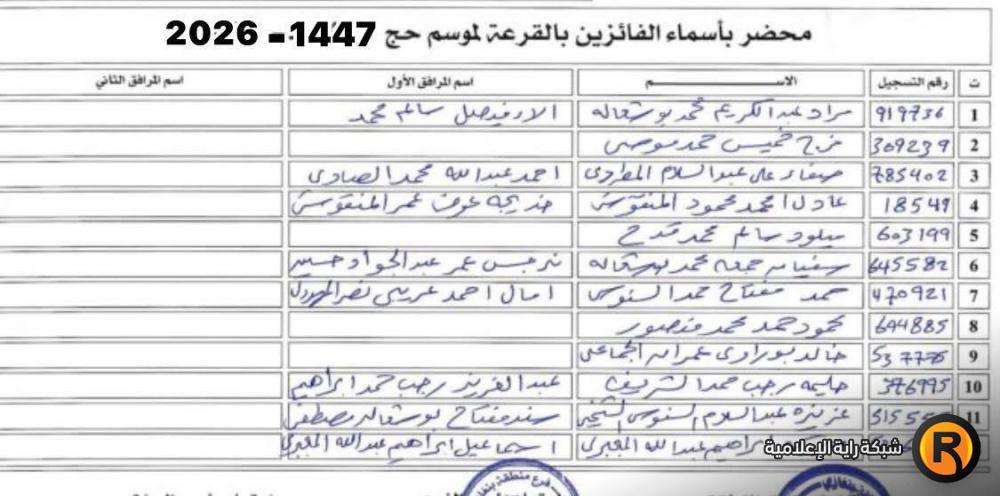 محضر بأسماء الفائزين بالقرعة لموسم حج 1447 - 2026
ت رقم التسجيل الاســـم اسم المرافق الأول اسم المرافق الثاني
1 919736 مراد عبدالكريم محمد بوشعاله سالم محمد
2 309239 فرج خميس حمد موسى
3 785402 صفاء على عبدالسلام احمد عبدالله محمد الصادى
4 18549 عادل امحمد محمود المنقوش خديجه عوض عمر المنقوش
5 603199 ميلود سالم محمد قدح
6 645582 جمعه محمد بوشعاله نرجس عمر عبدالجواد حسين
7 470921 حمد مفتاح حمد السنوسى امال احمد نصر
8 644885 محمود حمد محمد منصور
9 خالد عمران
10 376995 حليمه رجب حمد الشريف رجب حمد ابراهيم
11 عزيزه عبدالسلام السنوسى سند مفتاح بوشعاله مصطفى
ابراهيم عبدالله المغبرى اسماعيل ابراهيم عبدالله المغبرى
شبكة راية الإعلامية
R